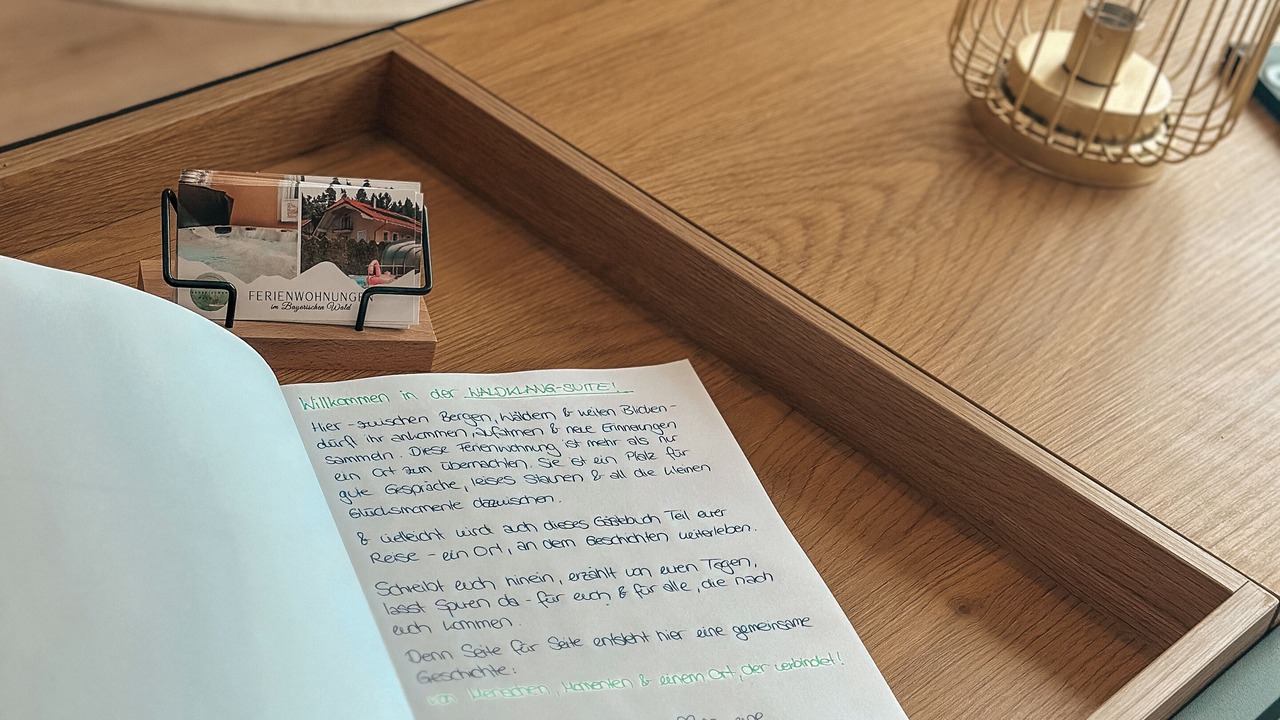 FERIENWOHNUNGE
im Bayerischen Wald
Willkommen in der WALDKLANG-SUITE!
Hier - zwischen Bergen, Wäldern & weiten Blicken -
dürft ihr ankommen, aufatmen & neue Erinnerungen
sammeln. Diese Ferienwohnung ist mehr als nur
ein Ort zum übernachten. Sie ist ein Platz für
gute Gespräche, leises Staunen & all die kleinen
Glücksmomente dazwischen.
& vielleicht wird auch dieses Gästebuch Teil eurer
Reise - ein Ort, an dem Geschichten weiterleben.
Schreibt euch hinein, erzählt von euren Tagen,
lasst Spuren da - für euch & für alle, die nach
euch kommen.
Denn Seite für Seite entsteht hier eine gemeinsame
Geschichte:
von Menschen, Momenten & einem Ort, der verbindet!